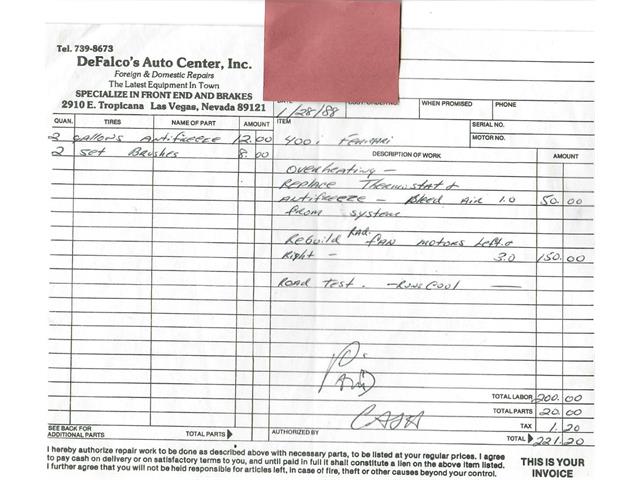 Tel. 739-8673
DeFalco's Auto Center, Inc.
Foreign & Domestic Repairs
The Latest Equipment In Town
SPECIALIZE IN FRONT END AND BRAKES
2910 E. Tropicana Las Vegas, Nevada 89121
DATE
1/28/88
WHEN PROMISED
PHONE
QUAN. TIRES NAME OF PART AMOUNT
ITEM
400i Ferrari
SERIAL NO.
MOTOR NO.
2 gallons Antifreeze 12.00
2 set Brushes 8.00
DESCRIPTION OF WORK AMOUNT
Overheating -
Replace Thermostat &
Antifreeze - Bleed Air 1.0 50.00
from system
Rebuild Rad. fan motors Left &
Right - 3.0 150.00
Road Test. - Runs Cool -
Paid
Cash
TOTAL LABOR 200.00
TOTAL PARTS 20.00
TAX 1.20
TOTAL 221.20
SEE BACK FOR
ADDITIONAL PARTS
TOTAL PARTS
AUTHORIZED BY
I hereby authorize repair work to be done as described above with necessary parts, to be listed at your regular prices. I agree
to pay cash on delivery or on satisfactory terms to you, and until paid in full it shall constitute a lien on the above item listed.
I further agree that you will not be held responsible for articles left, in case of fire, theft or other causes beyond your control.
THIS IS YOUR
INVOICE